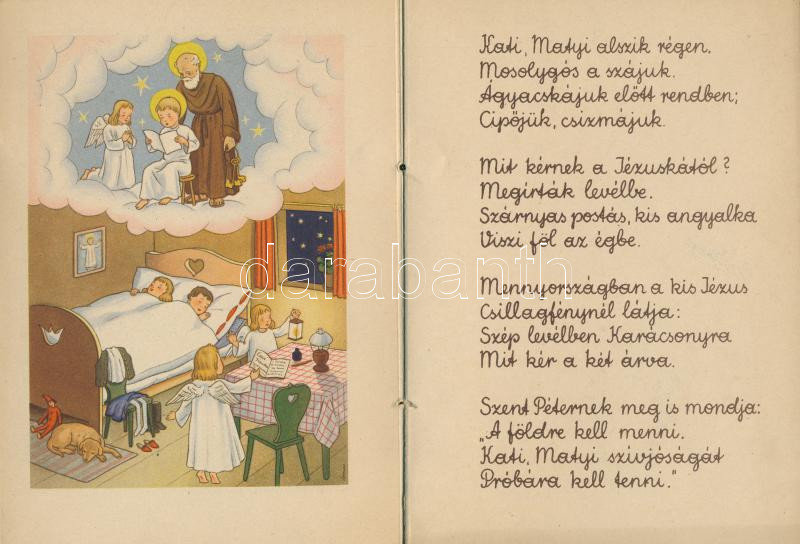 Kati, Matyi alszik régen.
Mosolygós a szájuk.
Ágyacskájuk előtt rendben;
Cipőjük, csizmájuk.
Mit kérnek a Jézuskától?
Megírták levélbe.
Szárnyas postás, kis angyalka
Viszi föl az égbe.
Mennyországban a kis Jézus
Csillagfénynél látja:
Szép levélben Karácsonyra
Mit kér a két árva.
Szent Péternek meg is mondja:
„A földre kell menni.
Kati, Matyi szívjóságát
Próbára kell tenni."
darabanth